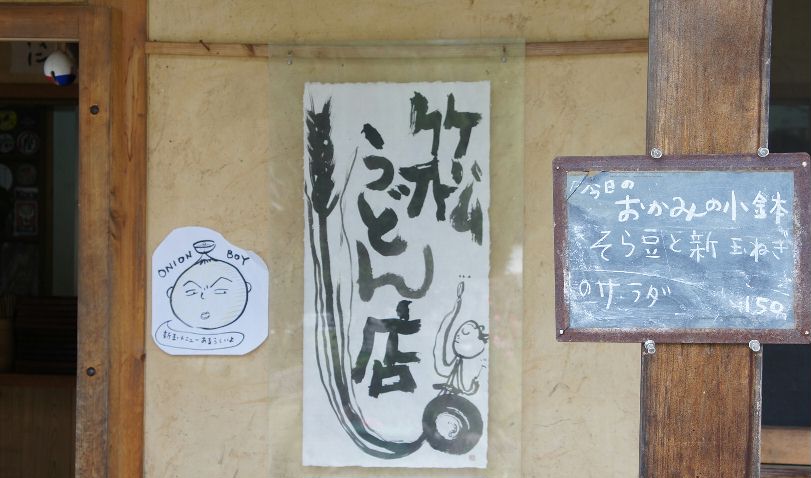 ONION BOY
新玉メニューあるらしいよ
竹松
うどん店
今日の
おかみの小鉢
そら豆と新玉ねぎ
のサラダ 150